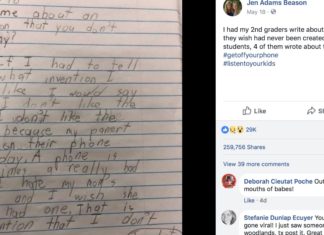 me about an
on that you don't
y?
If I had to tell
what invention I
like I would say
I don't like the
I don't like the
because my parent
their phone
day. A phone is
times a really bad
I hate my mom's
and I wish she
had one. That is
ention that I don't
Jen Adams Beason
May 18
I had my 2nd graders write about
they wish had never been created
students, 4 of them wrote about t
#getoffyourphone
#listentoyourkids
Like
29K
259,756 Shares
View 39 more comments
Deborah Cleutat Poche Out
mouths of babes!
Like · 4d
Stefanie Dunlap Ecuyer You
gone viral! I just saw someon
woodlands, tx post it. Great